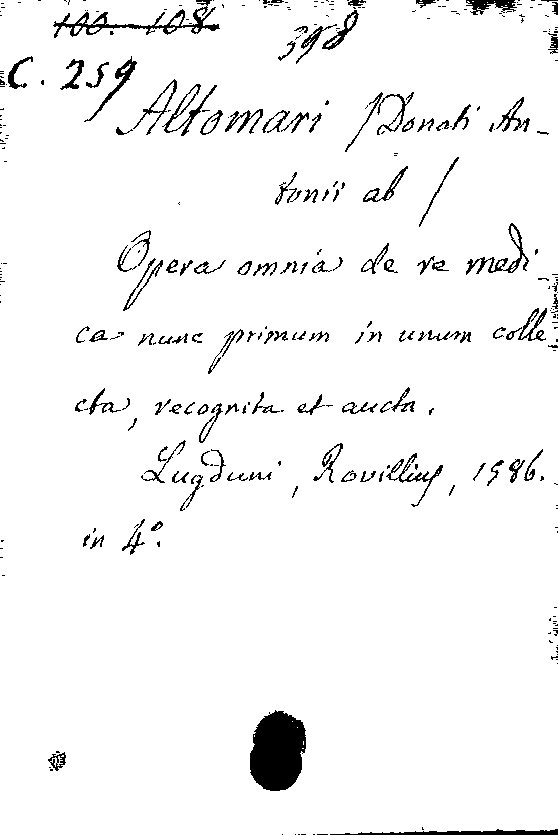 100. 108.
398
C. 259
Altomari /Donati An-
tonii ab /
Opera omnia de re medi-
ca nunc primum in unum colle
cta, recognita et aucta.
Lugduni, Rovillius, 1586.
in 4°.